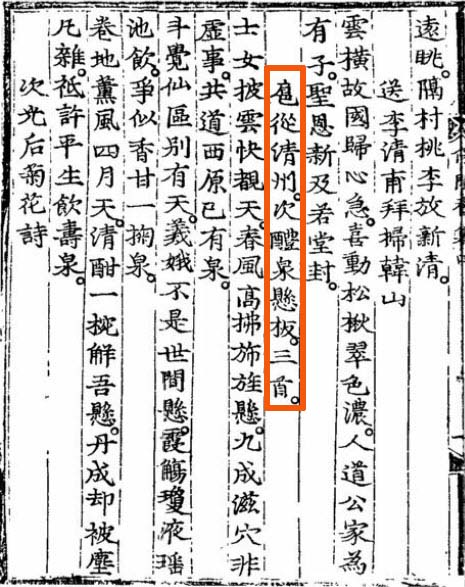 遠眺。隔村桃李放新清。
送李清甫拜掃韓山
雲橫故國歸心急。喜動松楸翠色濃。人道公家為
有子。聖恩新及若堂封。
扈從清州。次醴泉懸板。三首。
士女披雲快覩天。春風高拂斾旌懸。九成滋穴非
虛事。共道西原已有泉。
斗覺仙區別有天。羲娥不是世間懸。霞觴瓊液瑤
池飲。爭似香甘一掬泉。
卷地薰風四月天。清酣一枕解吾懸。丹成却被塵
凡雜。祗許平生飲壽泉。
次光后菊花詩